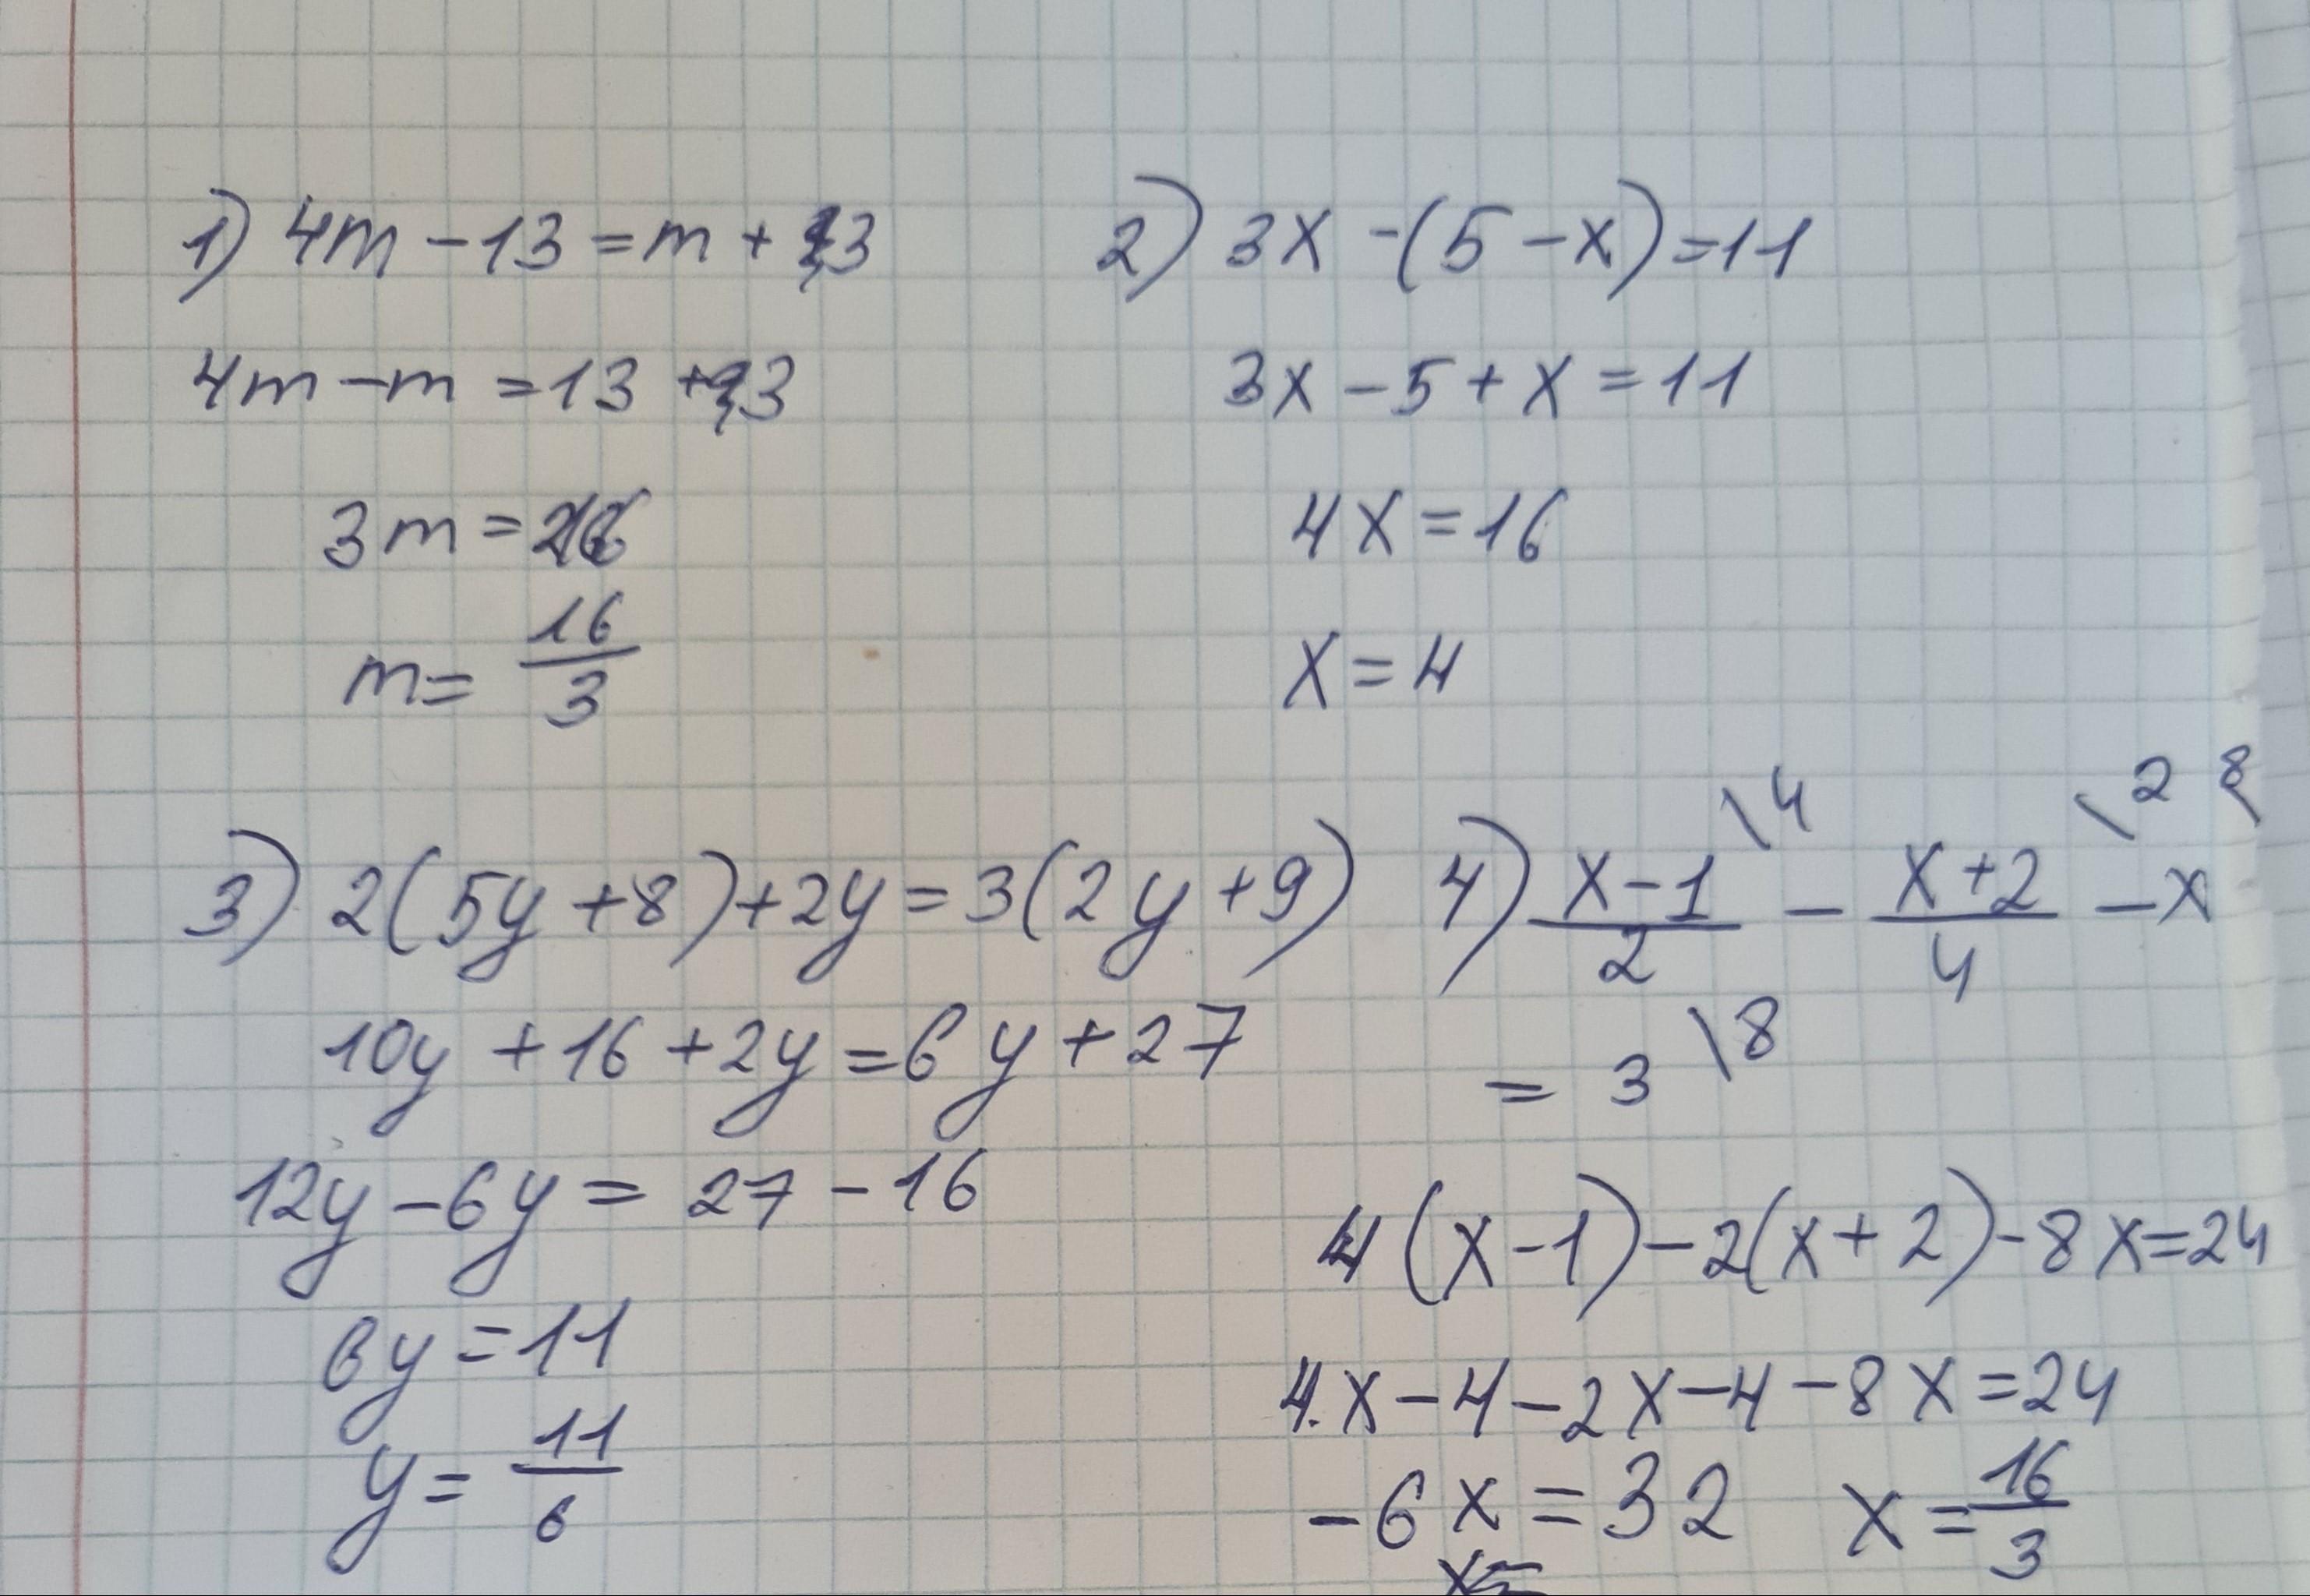 1) 4m - 13 = m + 3
4m - m = 13 + 3
3m = 16
m = 16/3
2) 3x - (5 - x) = 11
3x - 5 + x = 11
4x = 16
x = 4
3) 2(5y + 8) + 2y = 3(2y + 9)
10y + 16 + 2y = 6y + 27
12y - 6y = 27 - 16
6y = 11
y = 11/6
4) (x - 1)/2 \4 - (x + 2)/4 \2 - x \8
= 3 \8
4(x - 1) - 2(x + 2) - 8x = 24
4x - 4 - 2x - 4 - 8x = 24
-6x = 32 x = 16/3